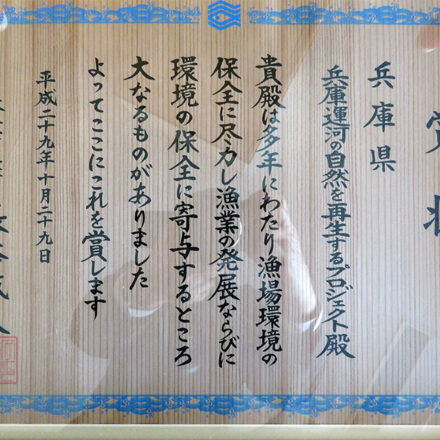 賞状
兵庫県
兵庫運河の自然を再生するプロジェクト殿
貴殿は多年にわたり漁場環境の
保全に尽力し漁業の発展ならびに
環境の保全に寄与するところ
大なるものがありました
よってここにこれを賞します
平成二十九年十月二十九日